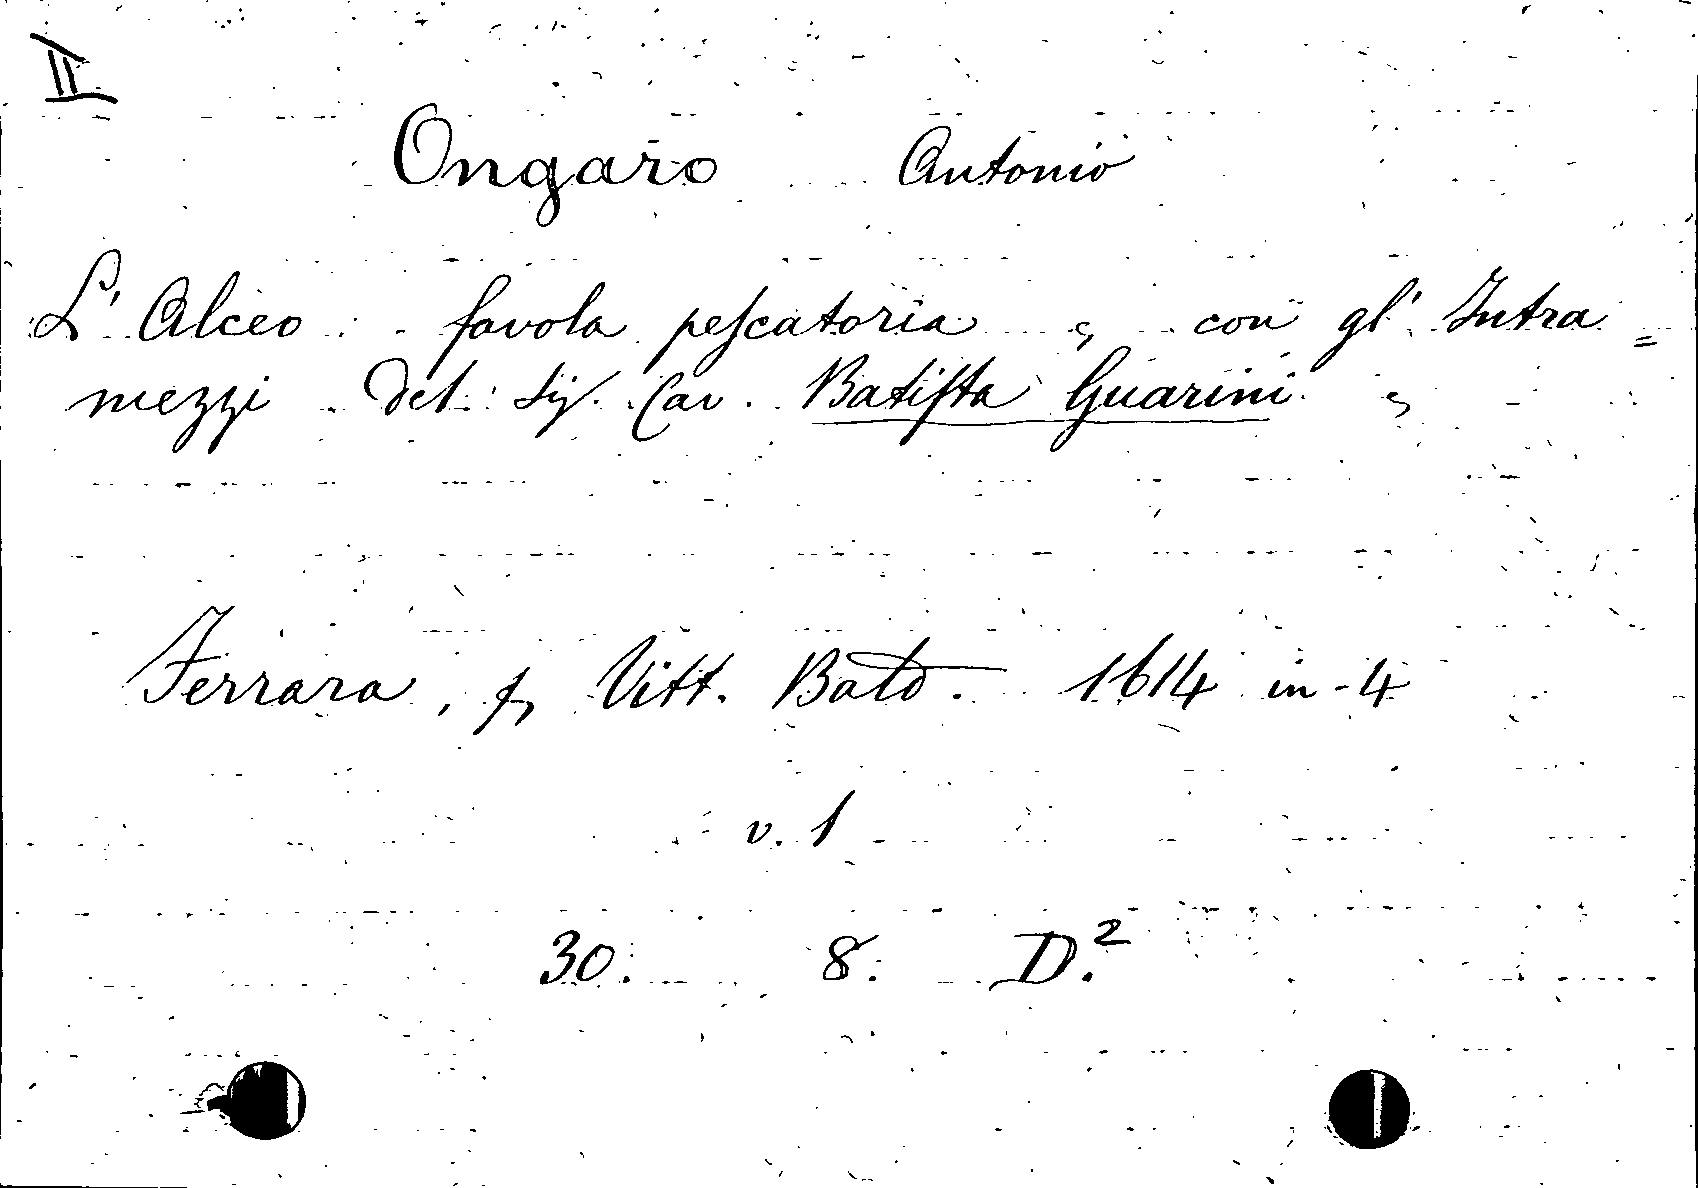 II
Ongaro Antonio
L'Alceo favola peſcatoria, con gl' Intra=
mezzi del Sig. Cav. Batiſta Guarini,
Ferrara, p, Vitt. Bald. 1614 in-4
v. 1
30. 8. D.²